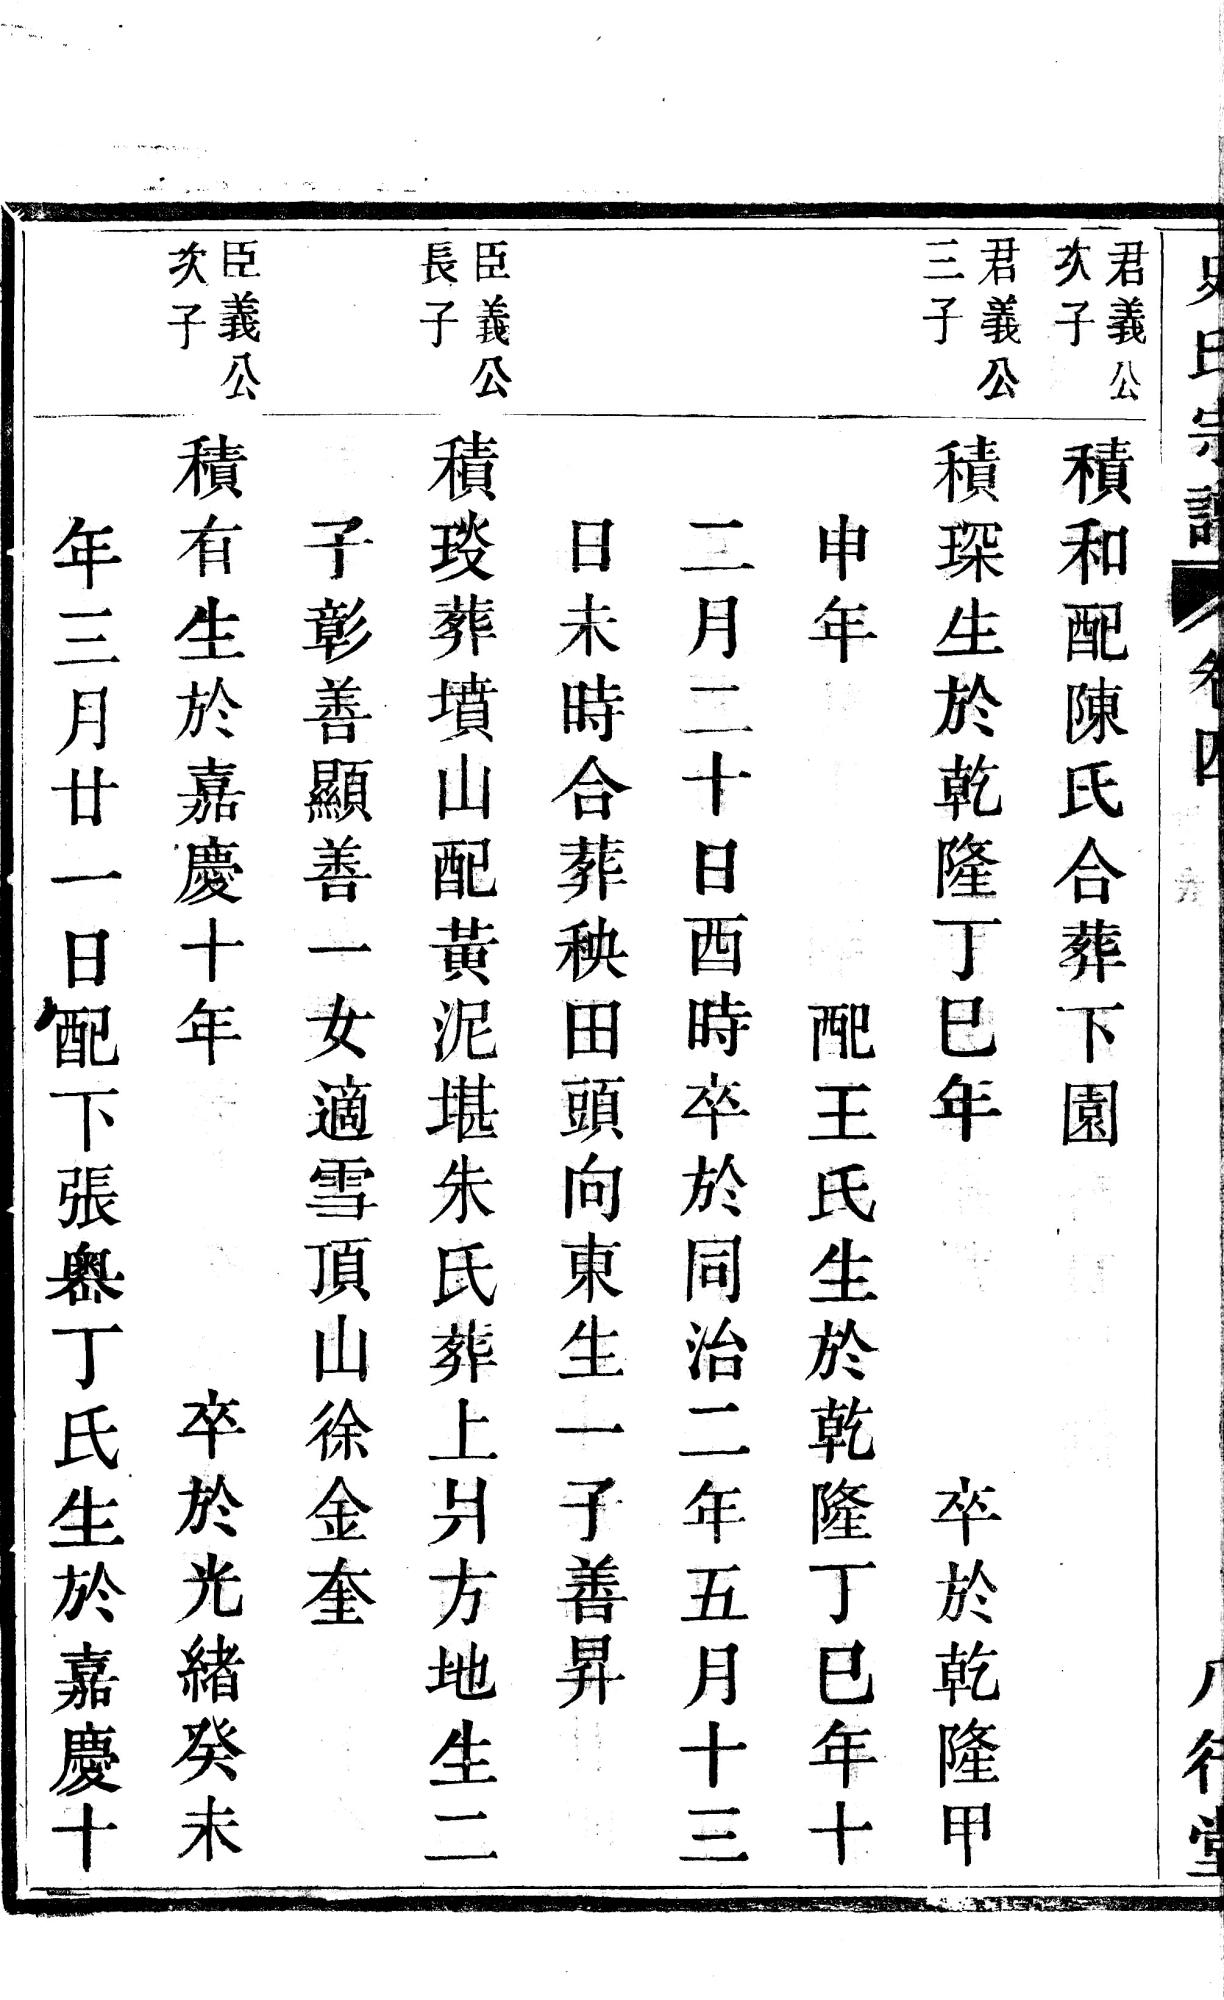 史氏宗譜 卷四 八行堂
君義公
次子
積和配陳氏合葬下園
君義公
三子
積琛生於乾隆丁巳年 卒於乾隆甲
申年 配王氏生於乾隆丁巳年十
二月二十日酉時卒於同治二年五月十三
日未時合葬秧田頭向東生一子善昇
臣義公
長子
積琰葬墳山配黃泥堪朱氏葬上爿方地生二
子彰善顯善一女適雪頂山徐金奎
臣義公
次子
積有生於嘉慶十年 卒於光緒癸未
年三月廿一日配下張嶴丁氏生於嘉慶十